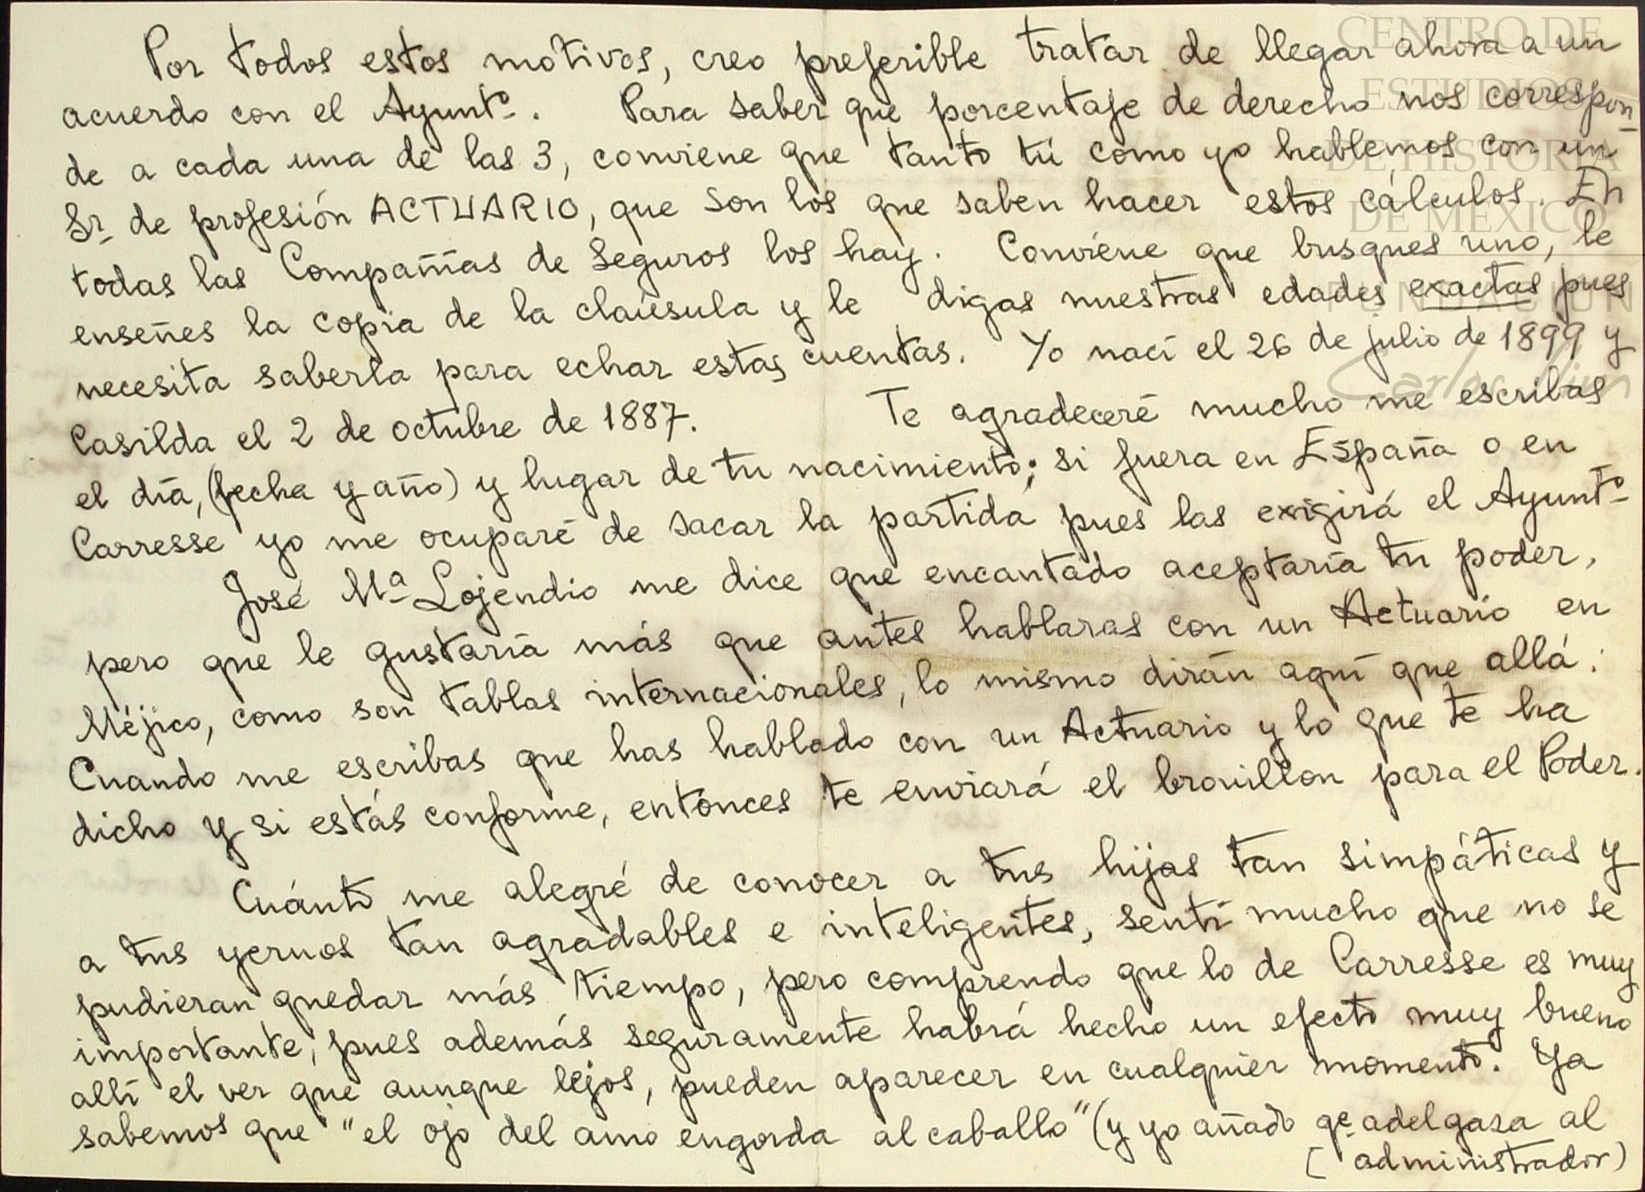 Por todos estos motivos, creo preferible tratar de llegar ahora a un
acuerdo con el Ayuntº. Para saber que porcentaje de derecho nos correspon-
de a cada una de las 3, conviene que tanto tú como yo hablemos con un
Sr. de profesión ACTUARIO, que son los que saben hacer estos cálculos. En
todas las Compañías de Seguros los hay. Conviene que busques uno, le
enseñes la copia de la claúsula y le digas nuestras edades exactas pues
necesita saberla para echar estas cuentas. Yo nací el 26 de julio de 1899 y
Casilda el 2 de octubre de 1887. Te agradeceré mucho me escribas
el día, (fecha y año) y lugar de tu nacimiento; si fuera en España o en
Carresse yo me ocuparé de sacar la partida pues las exigirá el Ayuntº
José Mª Lojendio me dice que encantado aceptaría tu poder,
pero que le gustaría más que antes hablaras con un Actuario en
Méjico, como son tablas internacionales, lo mismo dirán aquí que allá.
Cuando me escribas que has hablado con un Actuario y lo que te ha
dicho y si estás conforme, entonces te enviará el brouillon para el Poder.
Cuánto me alegré de conocer a tus hijas tan simpáticas y
a tus yernos tan agradables e inteligentes, sentí mucho que no se
pudieran quedar más tiempo, pero comprendo que lo de Carresse es muy
importante, pues además seguramente habrá hecho un efecto muy bueno
allí el ver que aunque lejos, pueden aparecer en cualquier momento. Ya
sabemos que "el ojo del amo engorda al caballo" (y yo añado qe adelgaza al
[administrador)
CENTRO DE
ESTUDIOS
DE HISTORIA
DE MEXICO
FUNDACIÓN
Carlos Slim